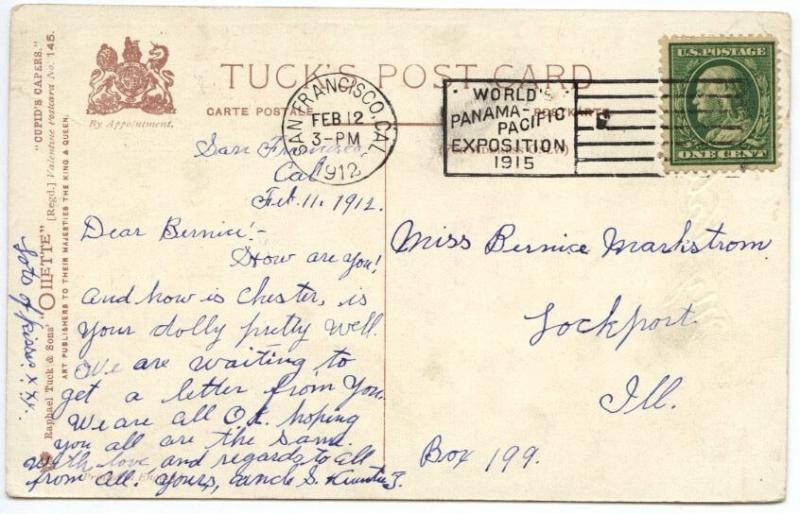 TUCK'S POST CARD
CARTE POSTALE
POSTKARTE
By Appointment.
"CUPID'S CAPERS."
Valentine Postcard No. 145.
Raphael Tuck & Sons' "OILETTE" [Regd.]
ART PUBLISHERS TO THEIR MAJESTIES THE KING & QUEEN.
SAN FRANCISCO, CAL.
FEB 12
3-PM
1912
WORLD'S
PANAMA-
PACIFIC
EXPOSITION
1915
U.S. POSTAGE
ONE CENT
San Francisco,
Cal.
Feb. 11. 1912.
Dear Bernice!-
How are you!
And how is Chester, is
your dolly pretty well.
We are waiting to
get a letter from you.
We are all O.K. hoping
you all are the same.
With love and regards to all
from all. Yours, S.
Lots of kisses. x x x..
Miss Bernice Markstrom
Lockport.
Ill.
Box 199.